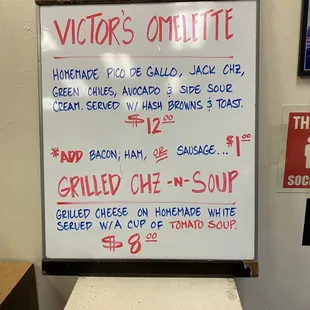 VICTOR'S OMELETTE
HOMEMADE PICO DE GALLO, JACK CHZ,
GREEN CHILES, AVOCADO & SIDE SOUR
CREAM. SERVED W/ HASH BROWNS & TOAST.
$12.00
*ADD BACON, HAM, OR SAUSAGE... $1.00
GRILLED CHZ -N- SOUP
GRILLED CHEESE ON HOMEMADE WHITE
SERVED W/A CUP OF TOMATO SOUP.
$8.00
TH
SOC